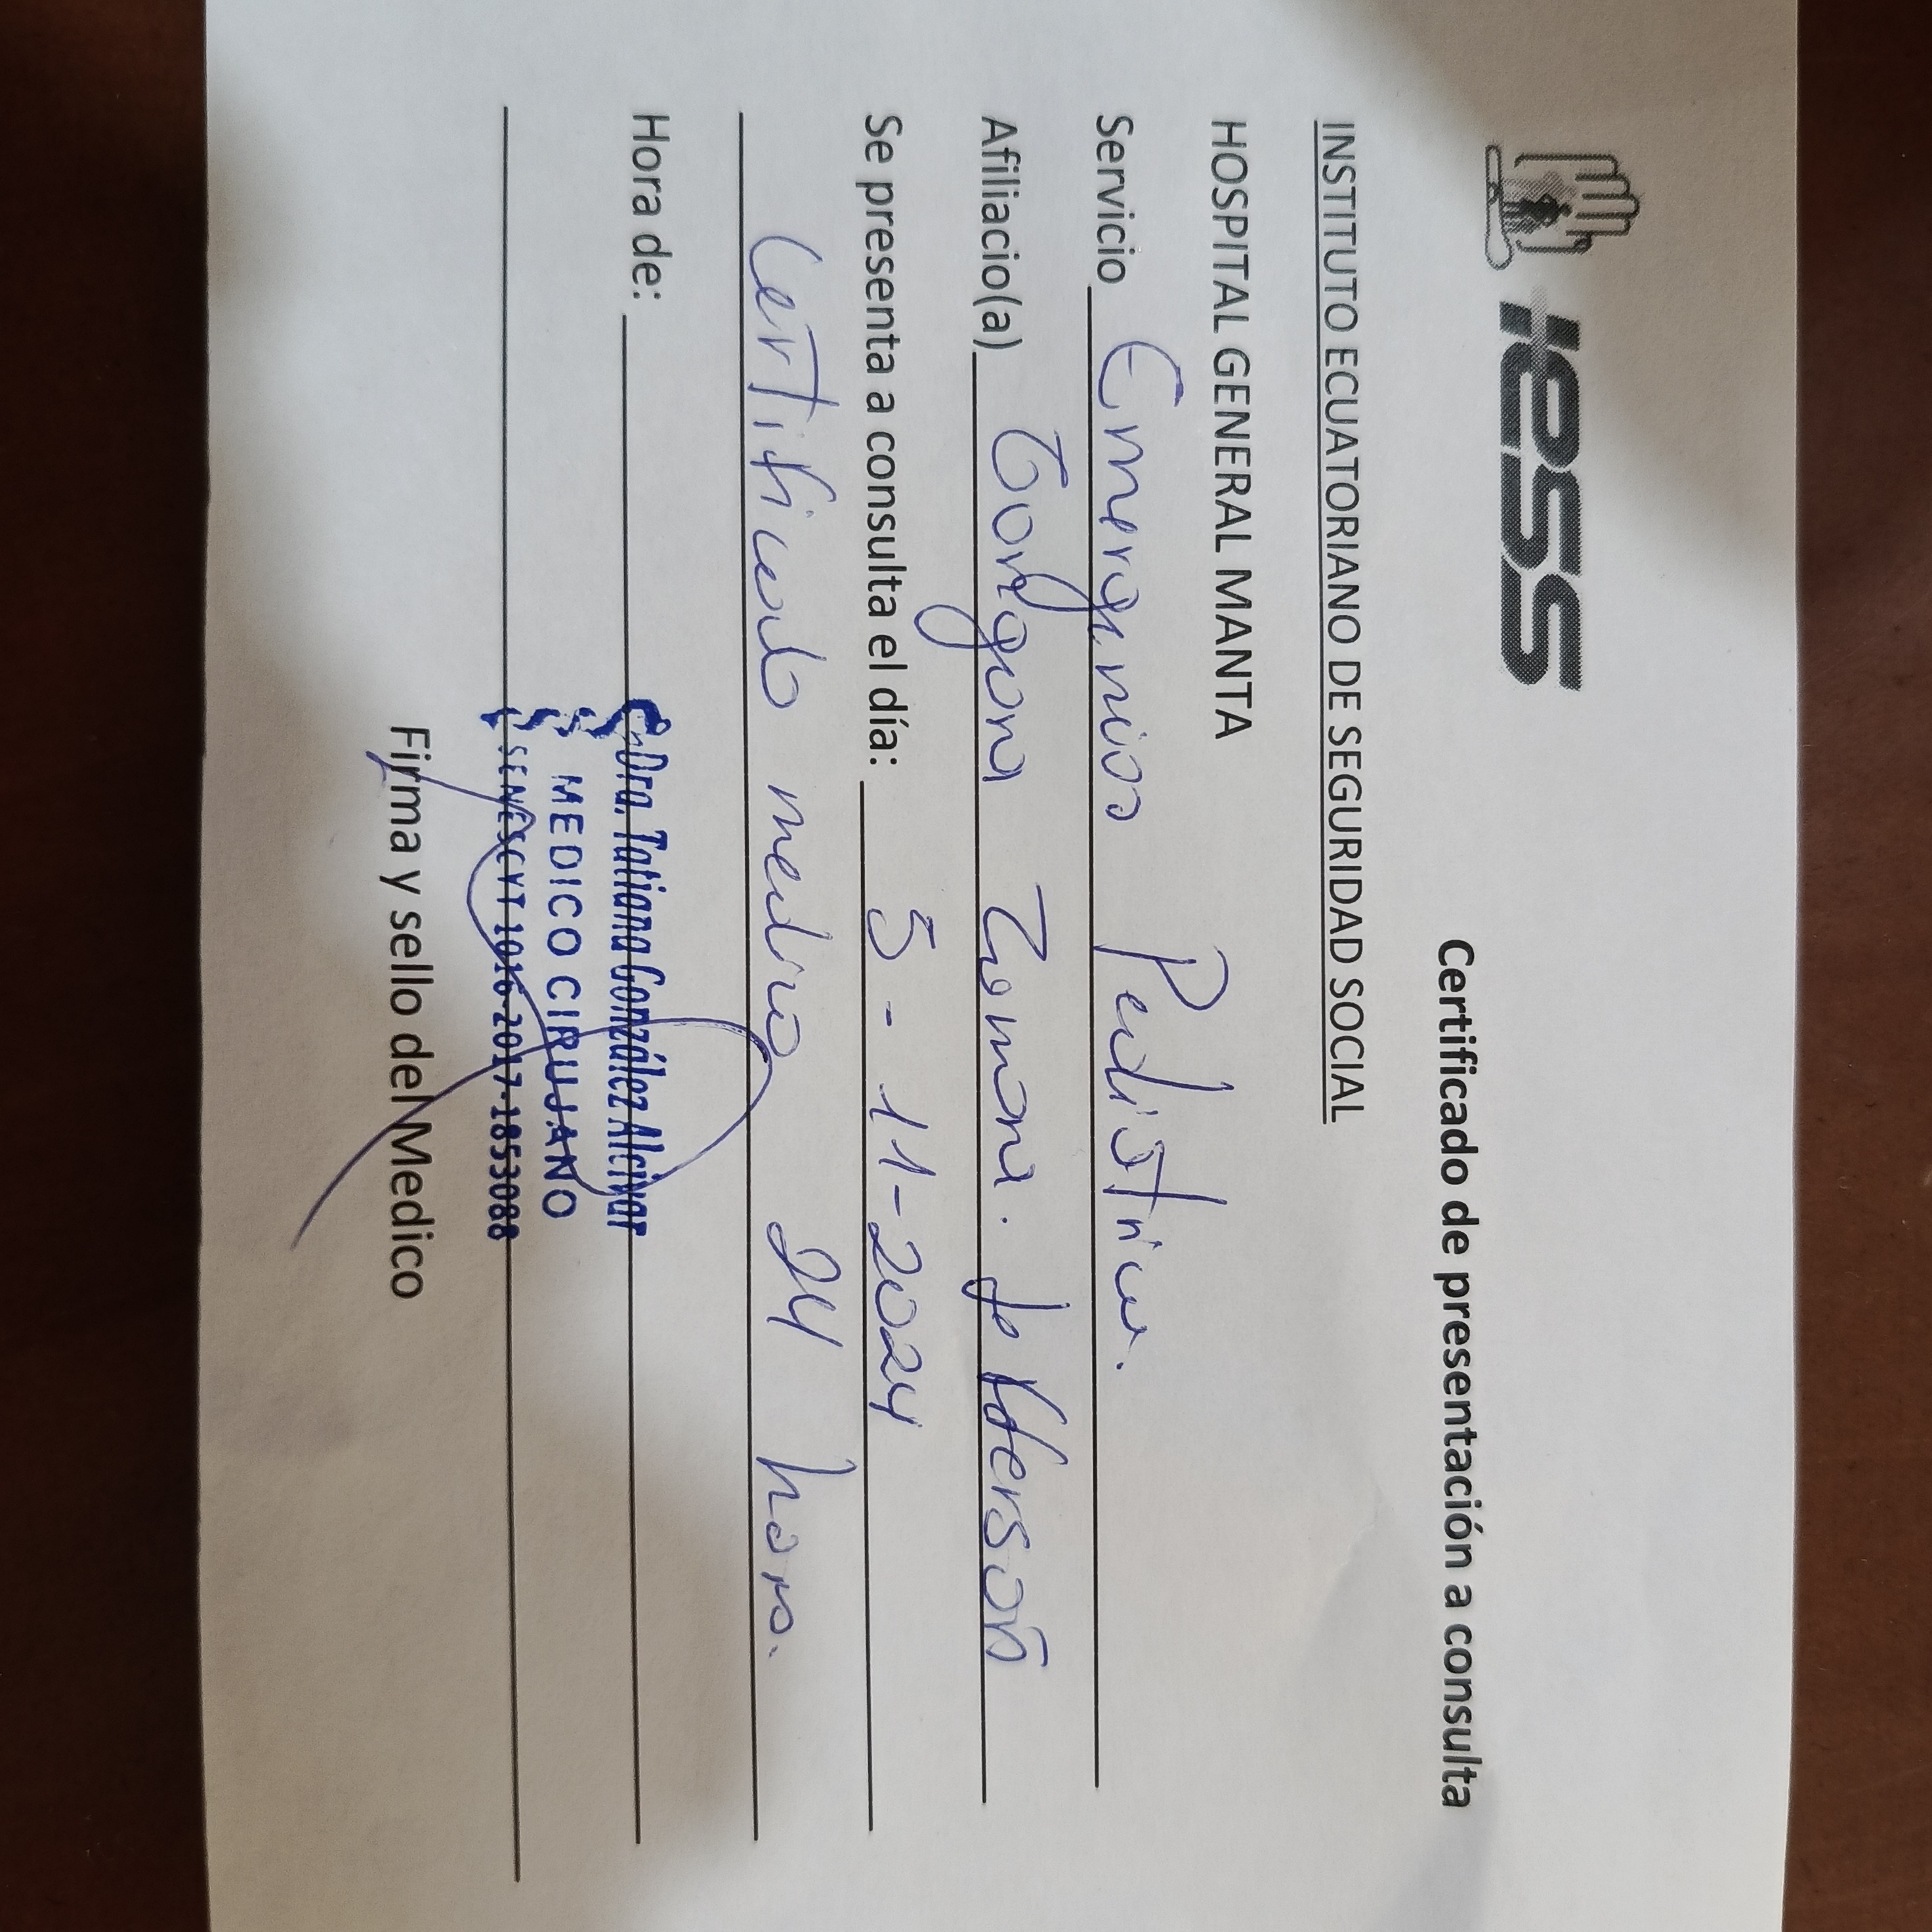 iess
Certificado de presentación a consulta
INSTITUTO ECUATORIANO DE SEGURIDAD SOCIAL
HOSPITAL GENERAL MANTA
Servicio Emergencias Pediatrica.
Afiliacio(a) Gongora Zamora. Jefferson
Se presenta a consulta el día: 5 - 11-2024
Certificado medico 24 horas.
Hora de:
Dra. Tatiana González Alcivar
MEDICO CIRUJANO
SENESCYT 1016-2017-1853088
Firma y sello del Medico